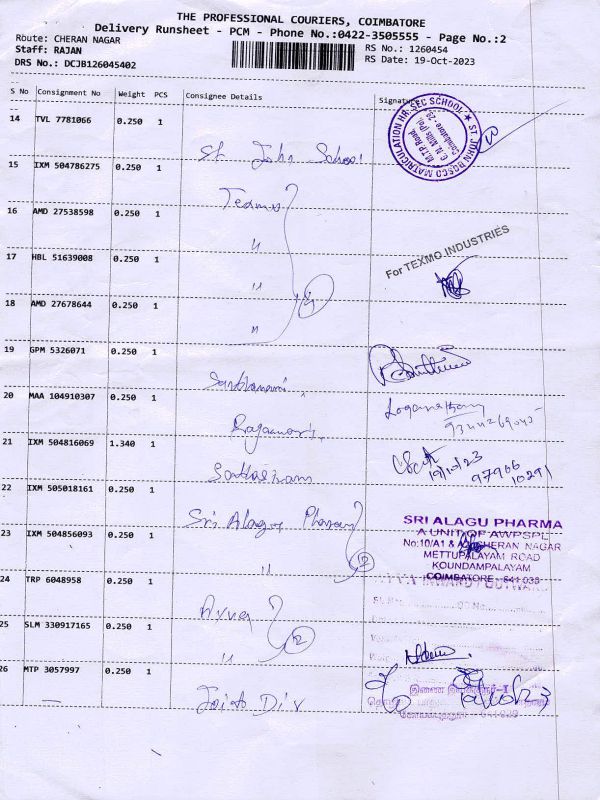 THE PROFESSIONAL COURIERS, COIMBATORE
Delivery Runsheet - PCM - Phone No.:0422-3505555 - Page No.:2
Route: CHERAN NAGAR
RS No.: 1260454
Staff: RAJAN
RS Date: 19-Oct-2023
DRS No.: DCJB126045402
S No Consignment No Weight PCS Consignee Details Signature
14 TVL 7781066 0.250 1
St John School
ST JOHN BOSCO MATRICULATION HR. SEC SCHOOL
M.T.P Road,
G.N. Mills (Po),
Coimbatore - 29.
15 IXM 504786275 0.250 1
16 AMD 27538598 0.250 1
17 HBL 51639008 0.250 1
For TEXMO INDUSTRIES
18 AMD 27678644 0.250 1
19 GPM 5326071 0.250 1
20 MAA 104910307 0.250 1
21 IXM 504816069 1.340 1
19/10/23
97966
10291
22 IXM 505018161 0.250 1
Sri Alagu Pharmacy
SRI ALAGU PHARMA
A UNIT OF AWPSPL
No:10/A1 & CHERAN NAGAR
METTUPALAYAM ROAD
KOUNDAMPALAYAM
COIMBATORE - 641 038
23 IXM 504856093 0.250 1
2
24 TRP 6048958 0.250 1
2
25 SLM 330917165 0.250 1
26 MTP 3057997 0.250 1
Joint Dir